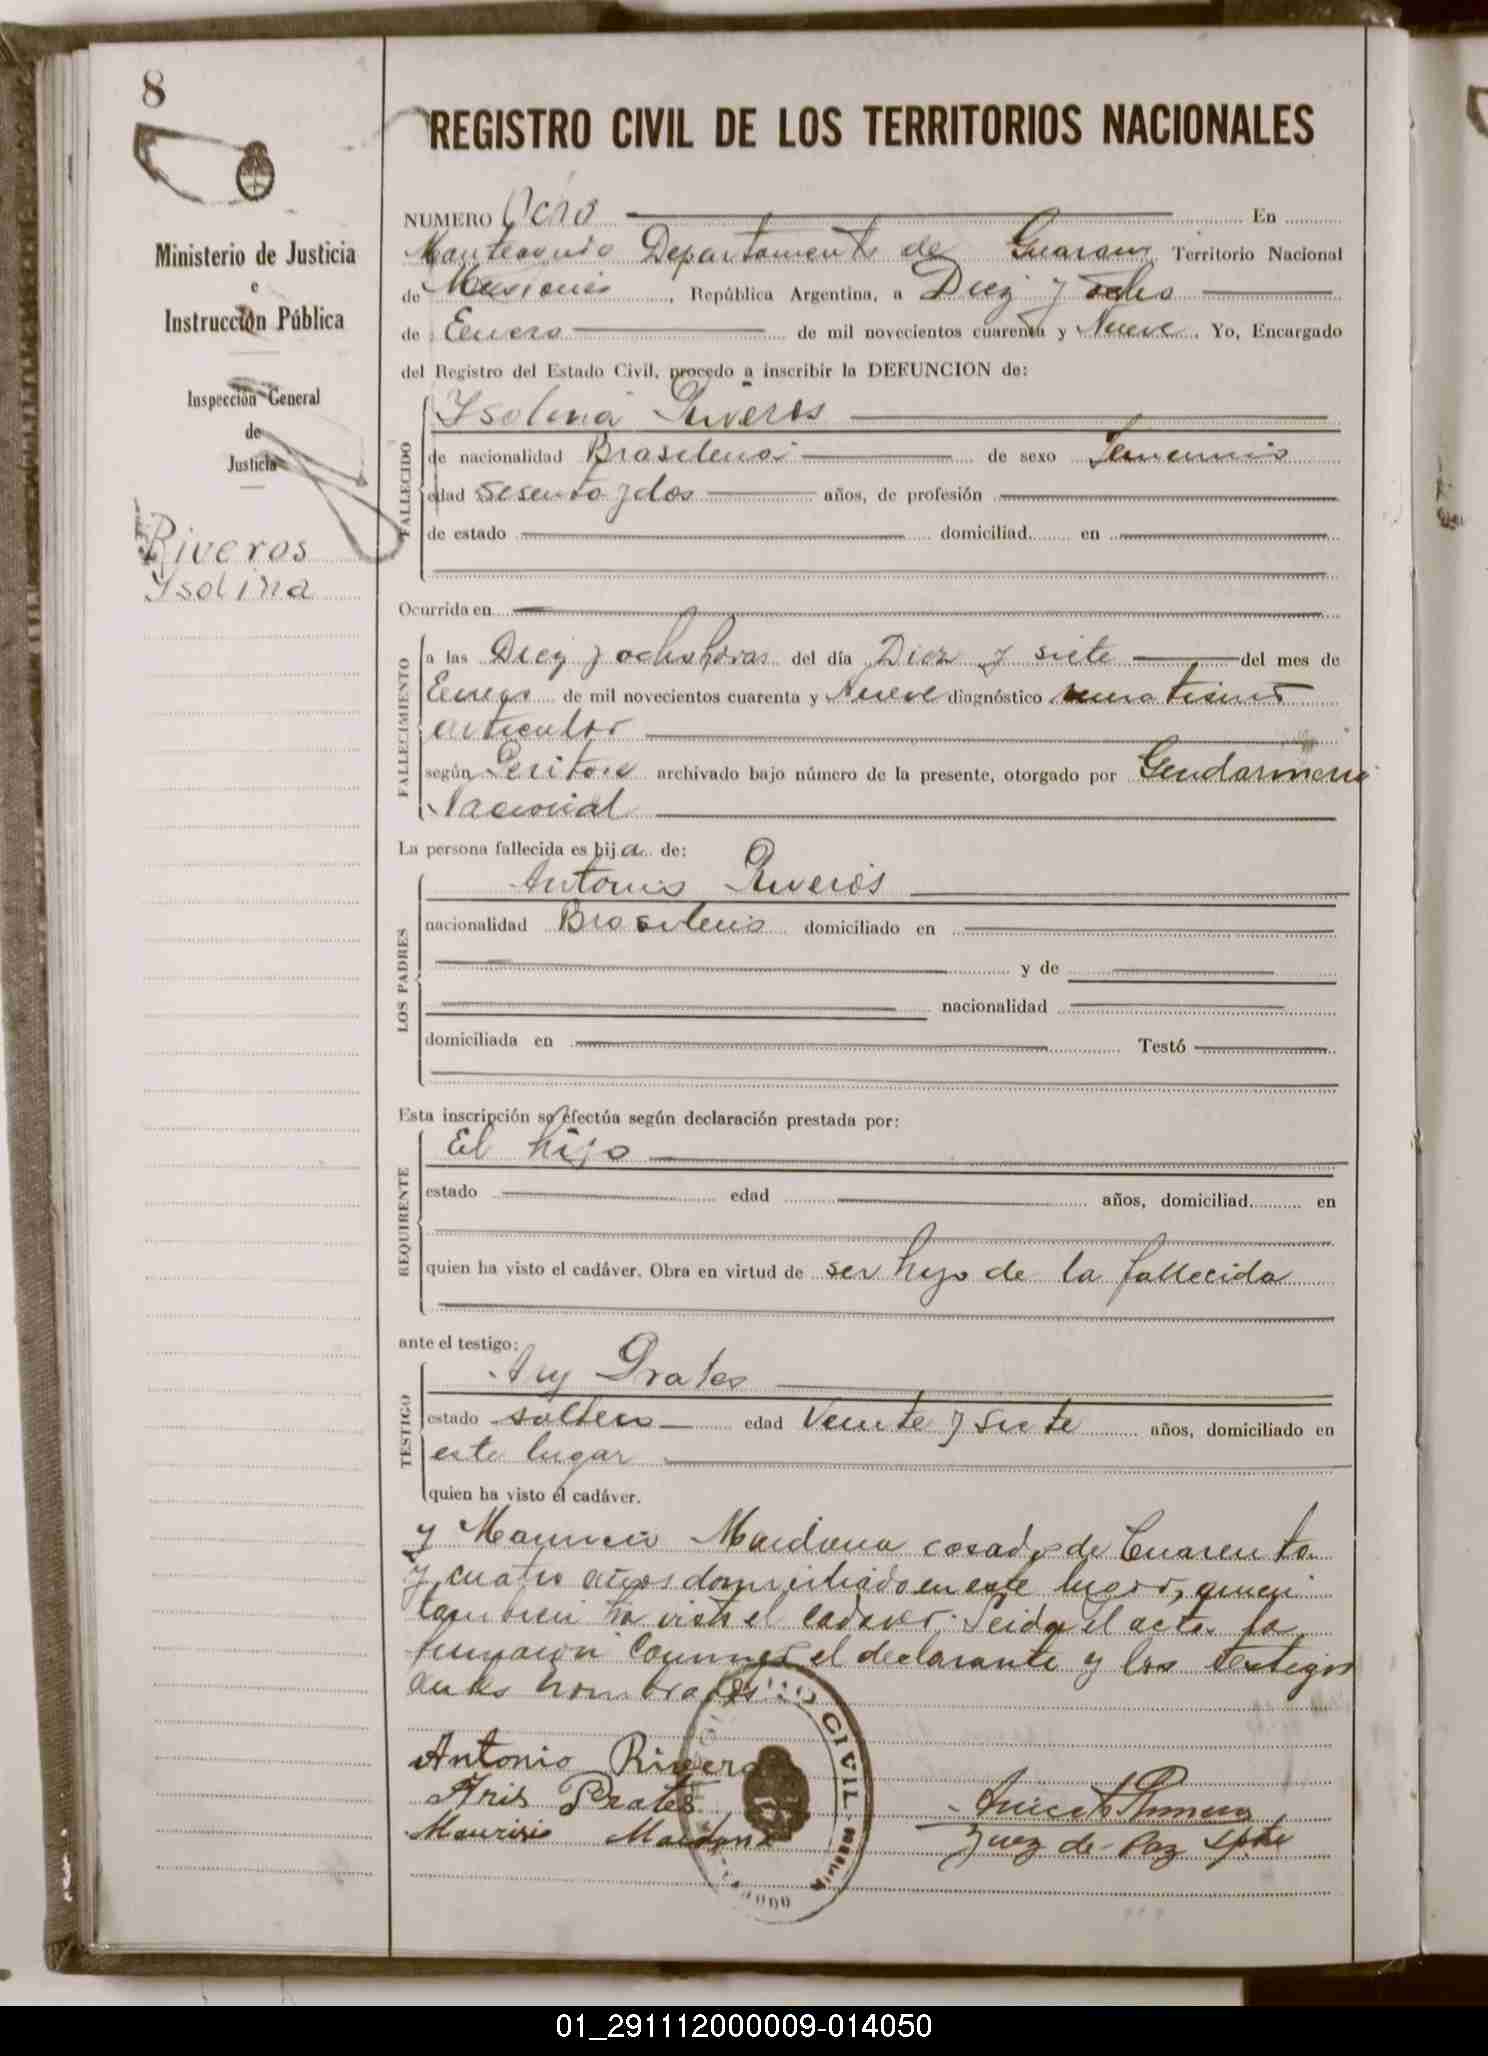 8
REGISTRO CIVIL DE LOS TERRITORIOS NACIONALES
Ministerio de Justicia
e
Instrucción Pública
Inspección General
de
Justicia
Riveros
Ysolina
NUMERO Ocho En
Departamento de Guarani Territorio Nacional
de Misiones, República Argentina, a Diez y ocho
de Enero de mil novecientos cuarenta y Nueve. Yo, Encargado
del Registro del Estado Civil, procedo a inscribir la DEFUNCION de:
FALLECIDO
Ysolina Riveros
de nacionalidad Brasilena de sexo femenino
edad sesenta y dos años, de profesión
de estado domiciliad en
Ocurrida en
FALLECIMIENTO
a las Diez y ocho horas del día Diez y siete del mes de
Enero de mil novecientos cuarenta y Nueve diagnóstico
articular
según archivado bajo número de la presente, otorgado por Gendarmeria
Nacional
La persona fallecida es hija de:
LOS PADRES
Antonio Riveros
nacionalidad Brasileno domiciliado en
y de
nacionalidad
domiciliada en Testó
Esta inscripción se efectúa según declaración prestada por:
REQUIRENTE
El hijo
estado edad años, domiciliad en
quien ha visto el cadáver. Obra en virtud de ser hijo de la fallecida
ante el testigo:
TESTIGO
Ary Prates
estado soltero edad Veinte y siete años, domiciliado en
este lugar
quien ha visto el cadáver.
y Mauricio Maidana casado de Cuarenta
y cuatro años domiciliado en este lugar, quien
tambien ha visto el cadaver. Leida el acta la
firmaron conmigo el declarante y los testigos
antes nombrados
Antonio Rivero
Aris Prates
Maurisio Maidana
Juez de Paz Splte
CIVIL
01_291112000009-014050